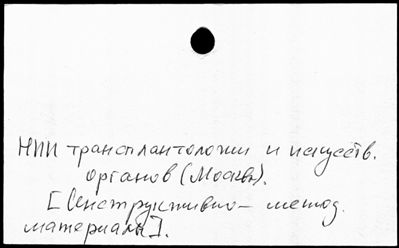 НИИ трансплантологии и искусств.
органов (Москва).
[Инструктивно - метод.
материалы].